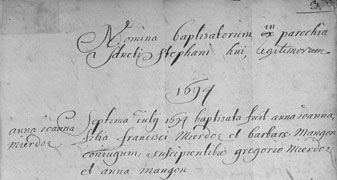 Nomina baptisatorum in parochia
Sancti Stephani huj, legitimorum.
1694
anna joanna
Mierdos
Septima july 1694 baptisata fuit anna joanna,
filia francisci Mierdos et barbara Maugon
conjugum, suscipientibus gregorio Mierdos
et anna maugon